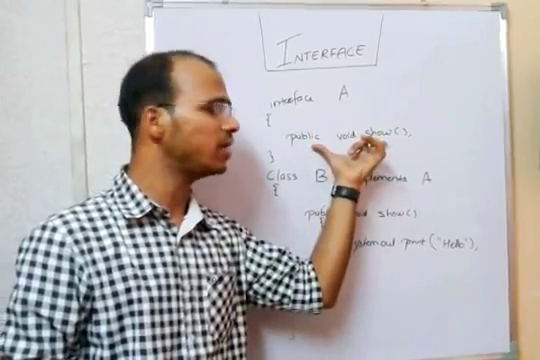 INTERFACE
interface A
{
public void show();
}
Class B implements A
{
public void show()
{
System.out.print("Hello");